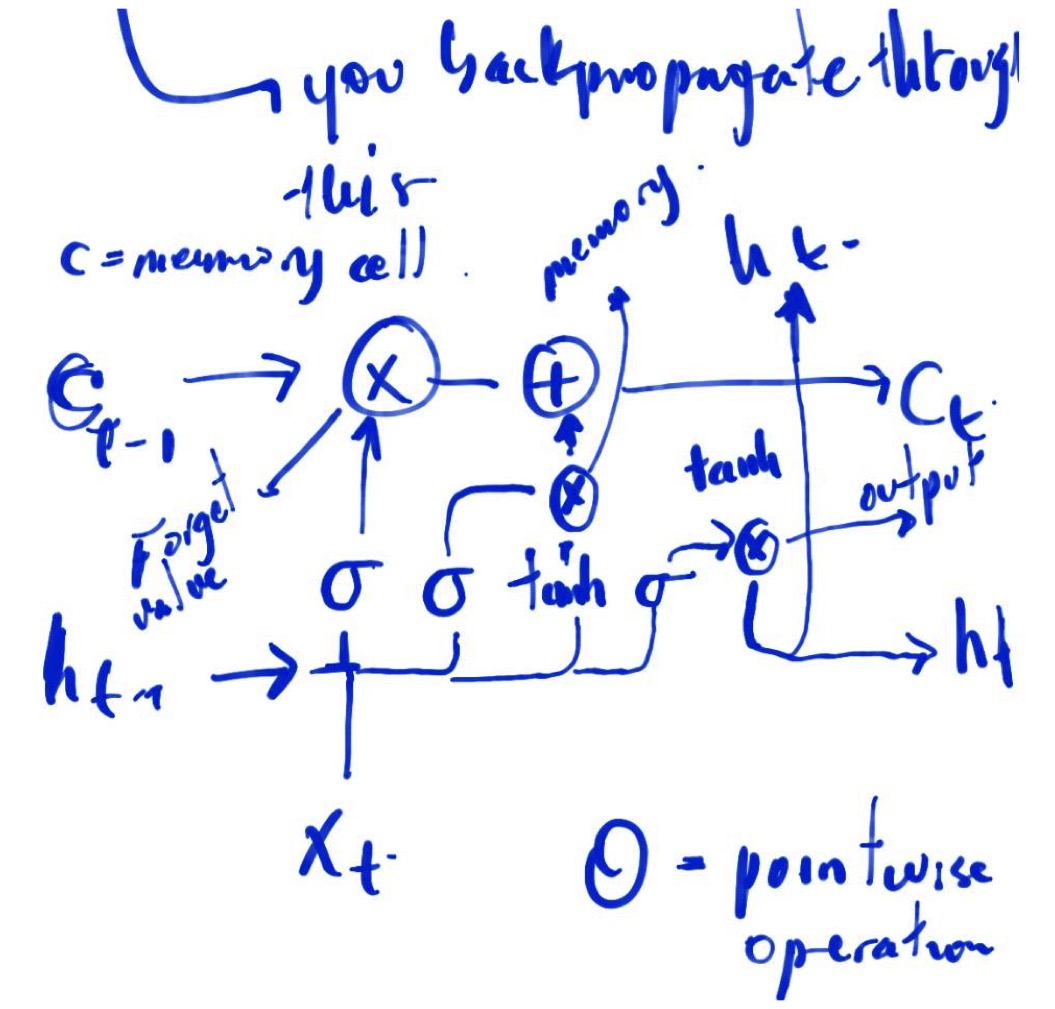 you backpropagate through
this
C = memory cell
memory
h t
C t-1
×
+
C t
Forget
valve
×
tanh
output
σ
σ
tanh
σ
×
h t-1
h t
X t
O = pointwise
operation